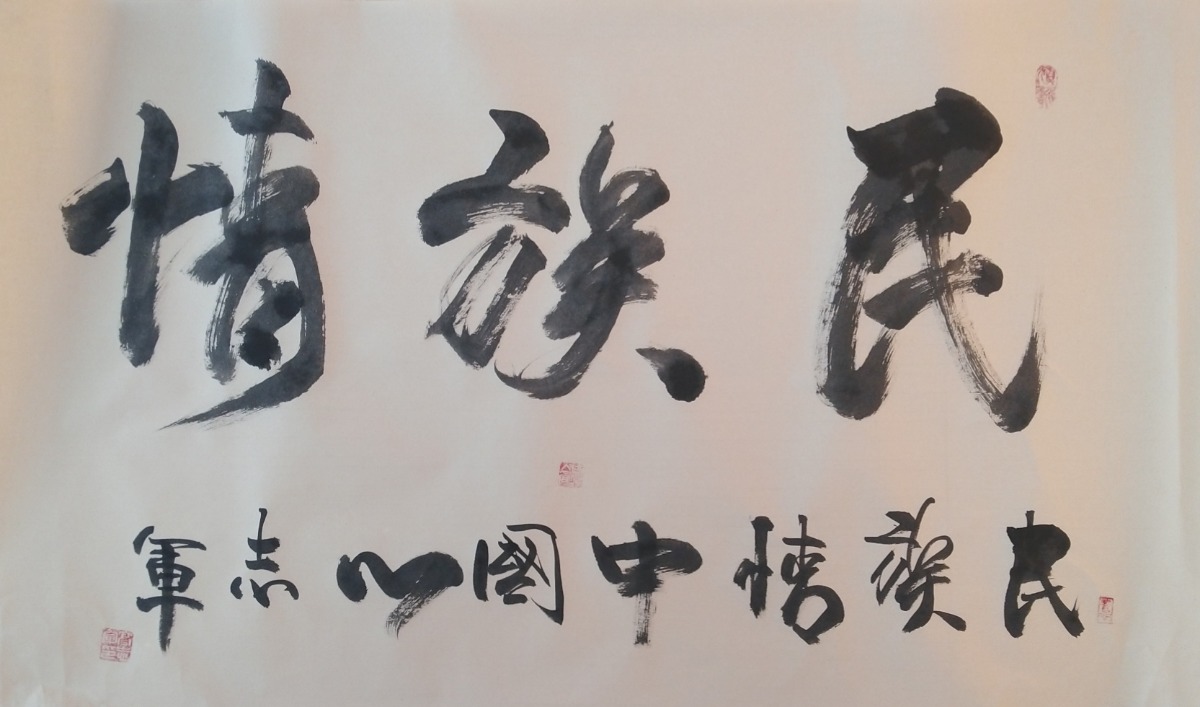 民族情
民族情中國心志軍